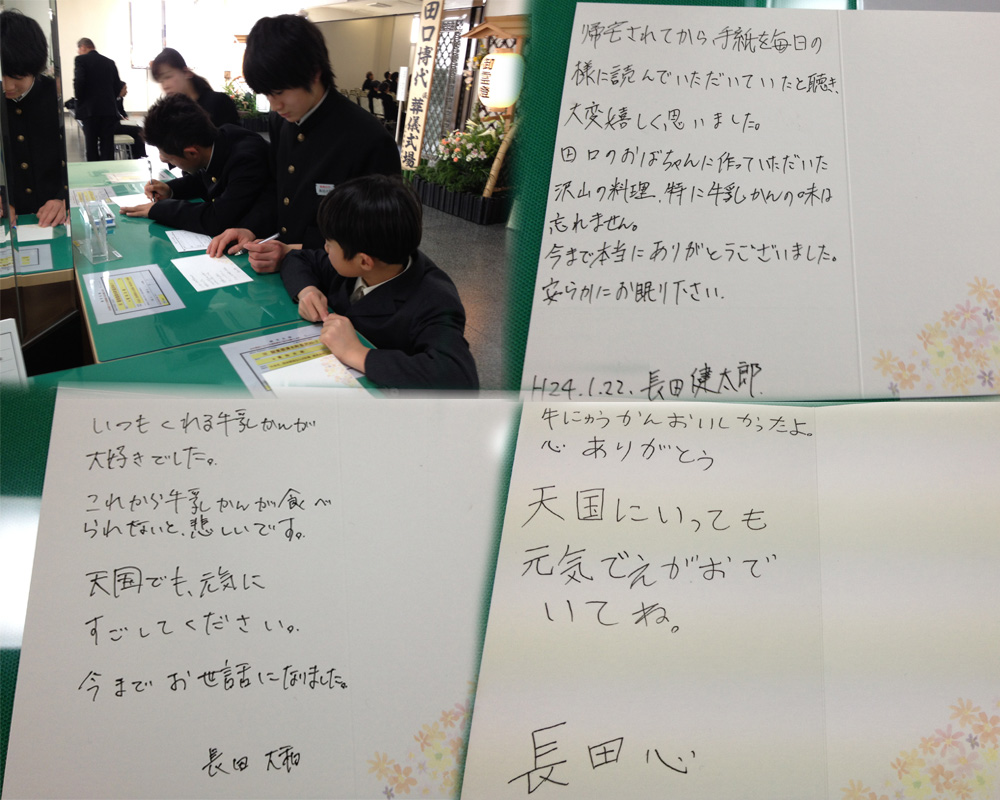 田口博代 葬儀式場
帰宅されてから、手紙を毎日の
様に読んでいただいていたと聴き、
大変嬉しく思いました。
田口のおばちゃんに作っていただいた
沢山の料理、特に牛乳かんの味は
忘れません。
今まで本当にありがとうございました。
安らかにお眠り下さい。
H24.1.22. 長田健太郎
いつもくれる牛乳かんが
大好きでした。
これから牛乳かんが食べ
られないと、悲しいです。
天国でも、元気に
すごしてください。
今まで お世話になりました。
長田 大和
牛にゅうかんおいしかったよ。
心 ありがとう
天国にいっても
元気でえがおで
いてね。
長田心